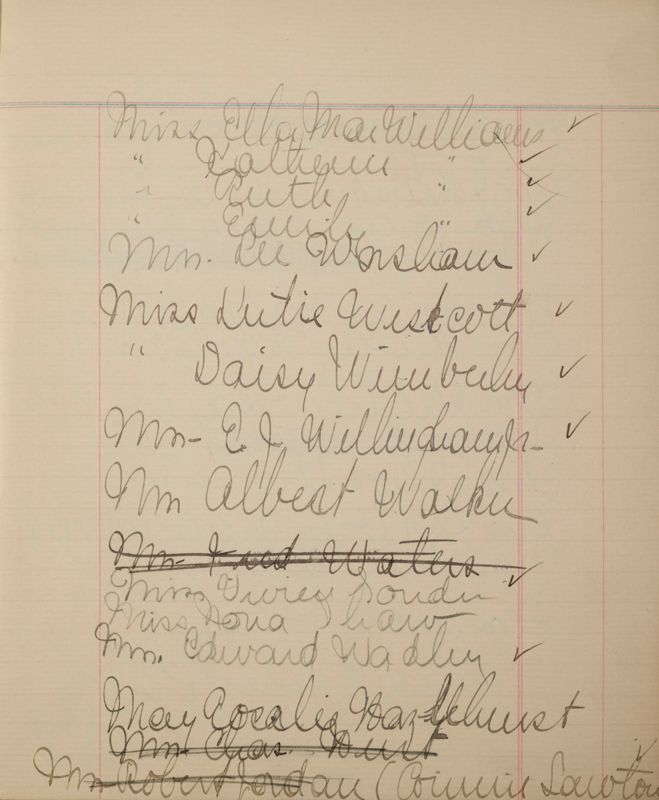 Miss Ella Mae Williams ✓
" Katherine " ✓
" Ruth " ✓
" Emily " ✓
Mrs. Lee Worsham ✓
Miss Katie Westcott ✓
" Daisy Wimberly ✓
Mrs- E. J. Willingham Jr- ✓
Mrs Albert Walker
Mrs Fred Waters
Miss ✓
Miss Nona Shaw
Mrs. Edward Wadley ✓
May Rosalie Hazlehurst
Mrs Chas.
Mrs Robert Jordan (Connie Lawton ✓